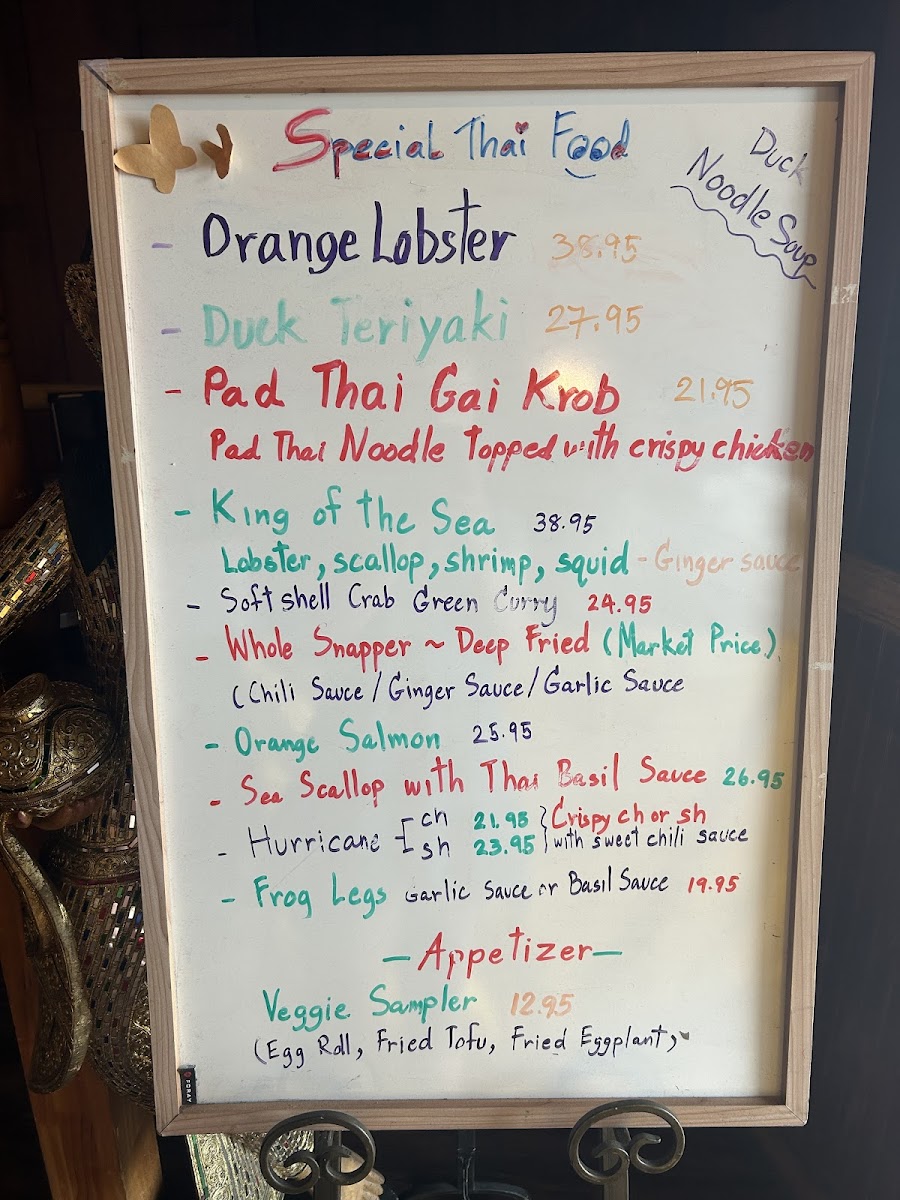 Special Thai Food
Duck
Noodle Soup
- Orange Lobster 38.95
- Duck Teriyaki 27.95
- Pad Thai Gai Krob 21.95
Pad Thai Noodle Topped with crispy chicken
- King of the Sea 38.95
Lobster, scallop, shrimp, squid - Ginger sauce
- Soft shell Crab Green Curry 24.95
- Whole Snapper ~ Deep Fried (Market Price)
(Chili Sauce / Ginger Sauce / Garlic Sauce
- Orange Salmon 25.95
- Sea Scallop with Thai Basil Sauce 26.95
- Hurricane [ ch 21.95 } Crispy ch or sh
sh 23.95 } with sweet chili sauce
- Frog Legs Garlic Sauce or Basil Sauce 19.95
- Appetizer -
Veggie Sampler 12.95
(Egg Roll, Fried Tofu, Fried Eggplant,
FORAY